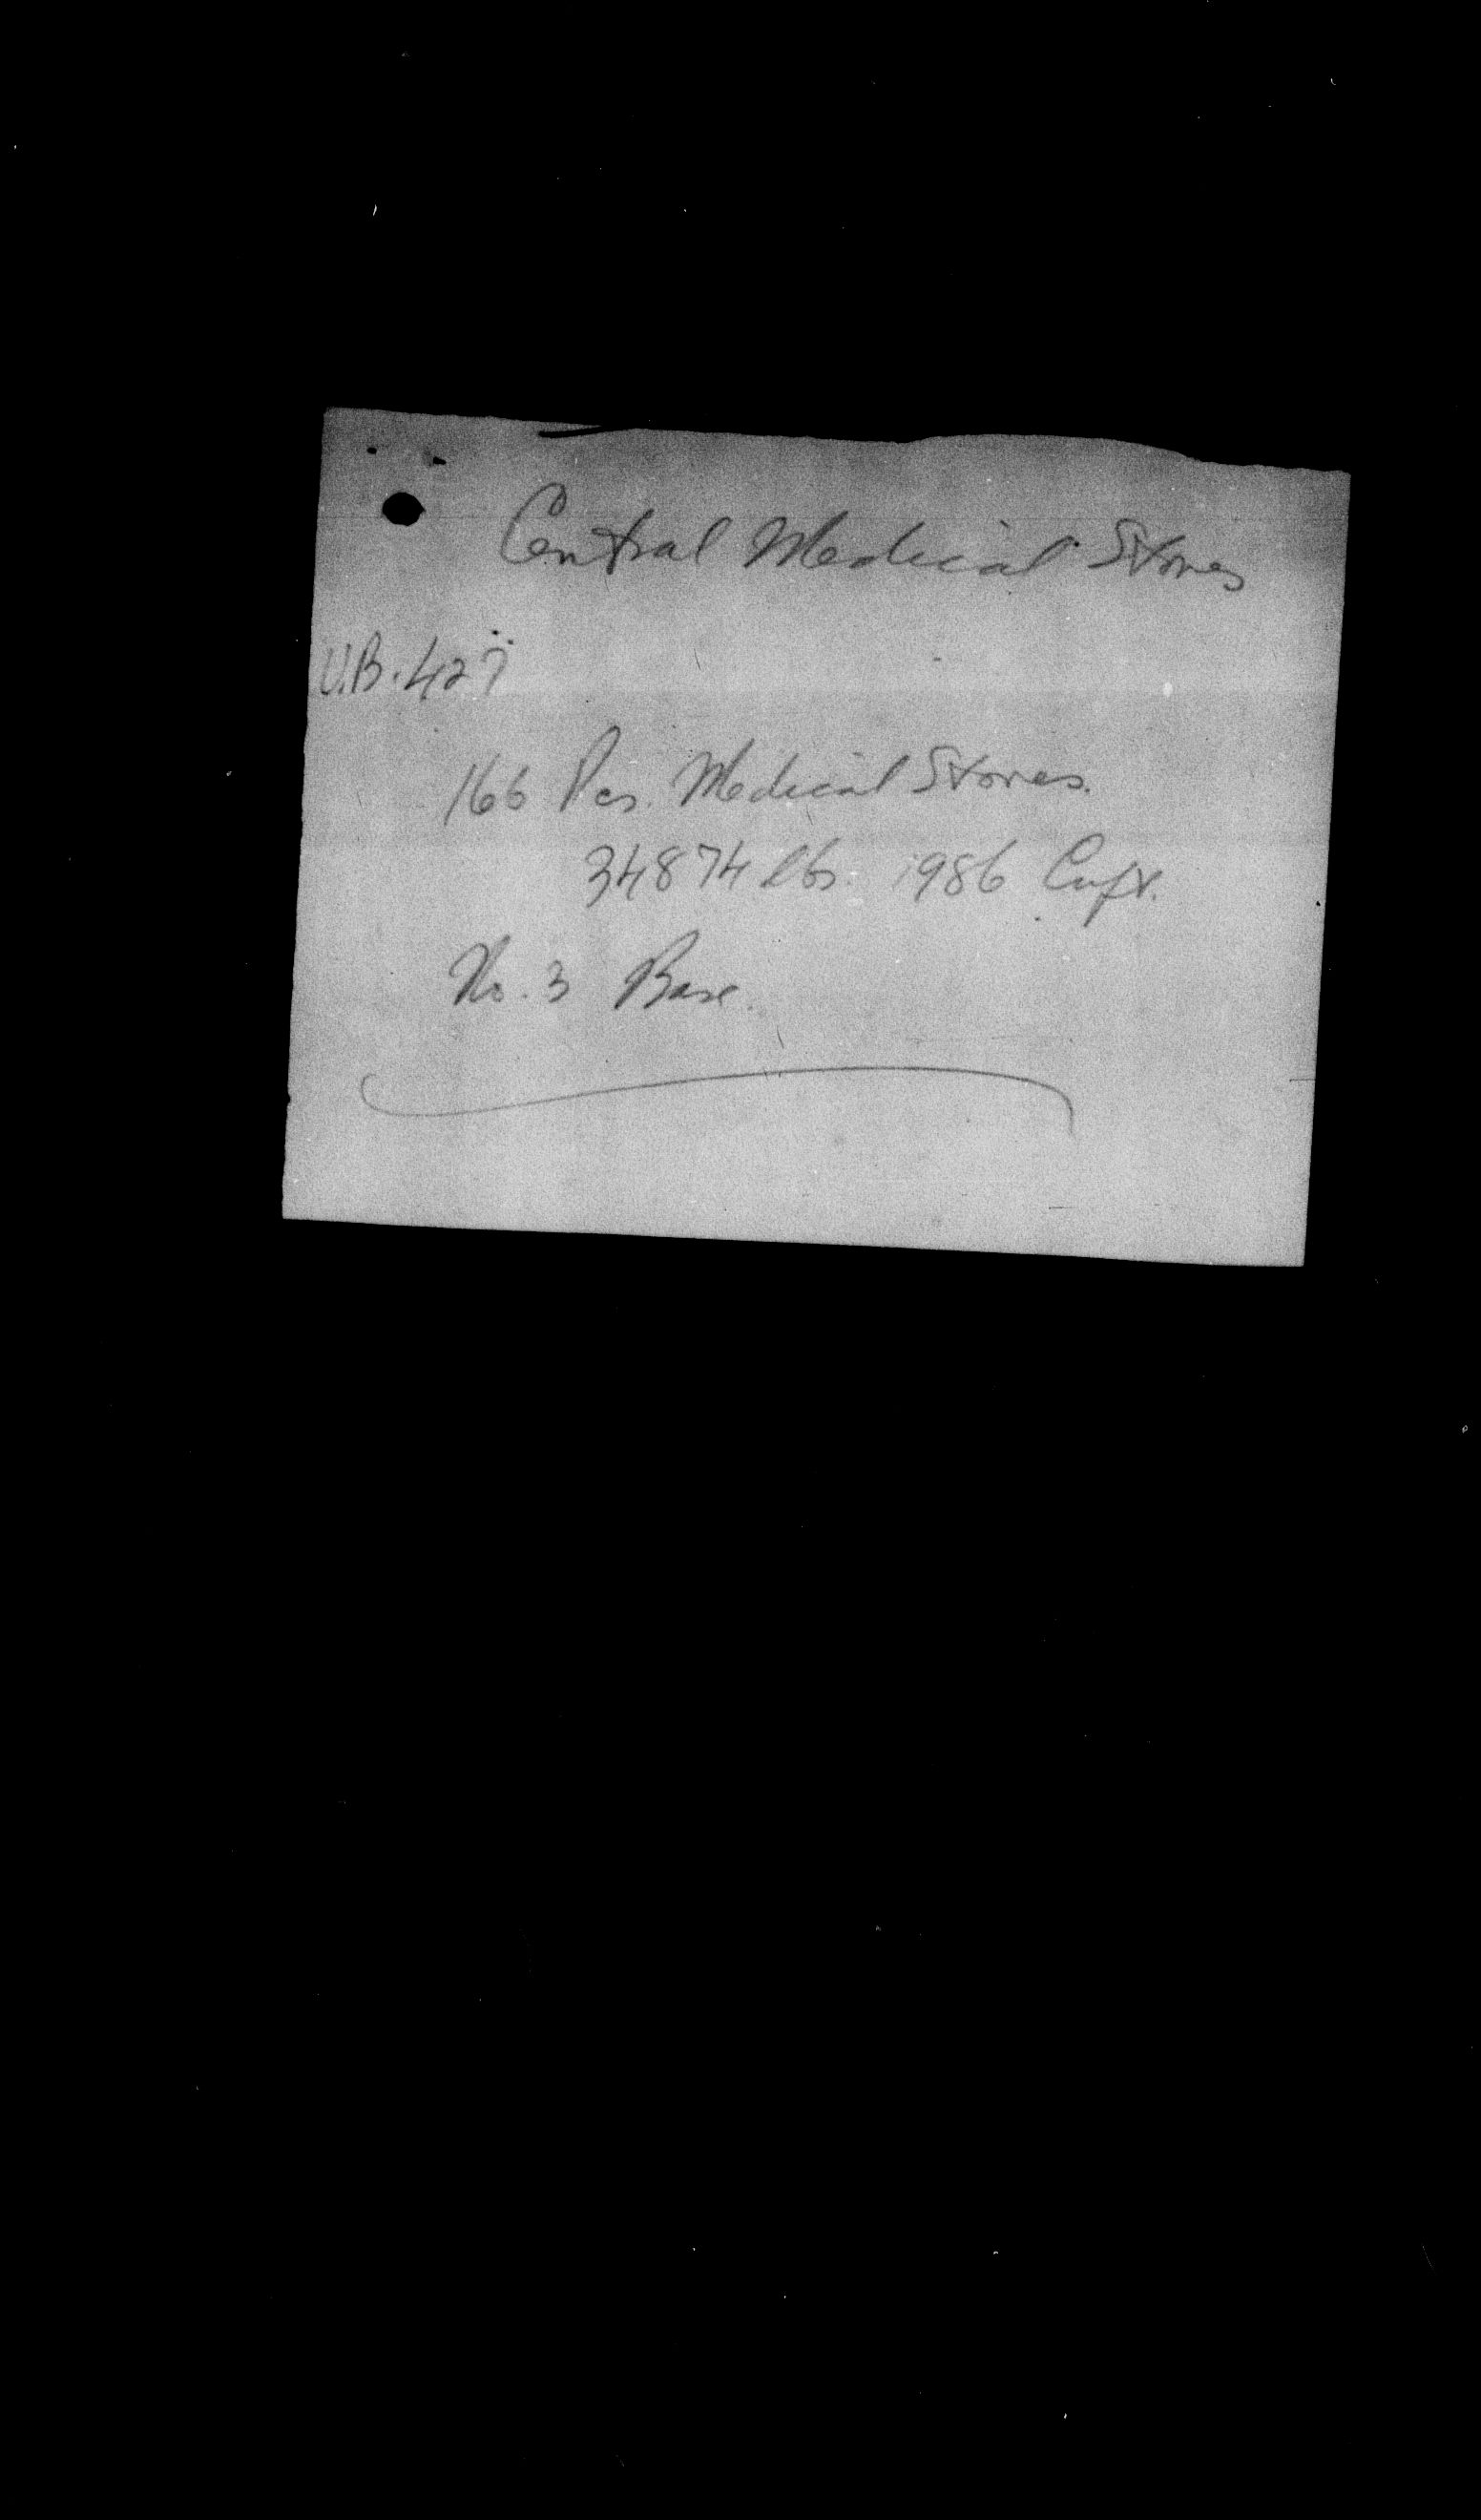 Central Medical Stores
U.B. 427
166 Pcs. Medical Stores.
34874 lbs. 1986 Cuft.
No. 3 Base.